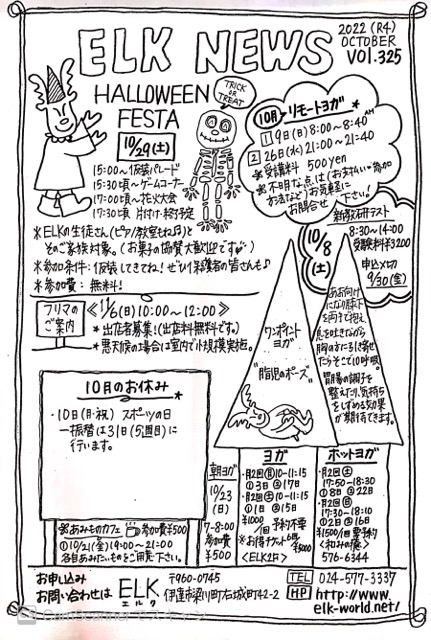 ELK NEWS
2022 (R4)
OCTOBER
VOl.325
HALLOWEEN
FESTA
TRICK
OR
TREAT
10/29(土)
15:00〜仮装パレード
15:30頃〜ゲームコーナー
17:00頃〜花火大会
17:30頃 片付け・終了予定
*ELKの生徒さん(ピアノ教室もね♪)と
そのご家族対象。(お菓子の協賛大歓迎です)
*参加条件:仮装してきてね!ぜひ保護者の皆さんも♪
*参加費: 無料!
10月 リモートヨガ
1 9日(日)8:00〜8:40 AM
2 26日(水)21:00〜21:40
*受講料 500yen
*不明な点は(お支払い・参加
方法など)お気軽に
お問合せ下さい!
新教研テスト
10/8(土)
8:30〜14:00
受験料¥3200
申込〆切
9/30(金)
フリマの
ご案内
《11/6(日)10:00〜12:00》
*出店者募集!(出店料無料です。)
*悪天候の場合は室内で小規模実施。
ワンポイント
ヨガ
"胎児のポーズ"
あお向けに
なり膝下
を両手で抱え
息を吐きながら
胸の方に引き寄せ
たらそこで10呼吸。
胃腸の調子を
整えたり、気持ち
をしずめる効果
が期待できます。
10月のお休み
・10日(月・祝) スポーツの日
→振替は31日(5週目)に
行います。
※あみものカフェ 参加費¥500
①10/21(金)19:00〜21:00
各自あみたいものをご用意下さい。
朝ヨガ
10/23
(日)
7-8:00
参加費
¥500
ヨガ
・月2回(月)10-11:15
①3日②17日
・月2回(土)10-11:15
①1日②15日
¥1000/1回 予約不要
*お得チケット6回
¥5000
<ELK2F>
ホットヨガ
・月2回(土)
17:50-18:30
①8日②22日
・月2回(日)
17:30-18:10
①2日②16日
¥1500/1回 要予約
<和みの癒>
576-6344
お申し込み
お問い合わせは
ELK
エルク
〒960-0745
伊達市梁川町右城町42-2
TEL 024-577-3337
HP http://www.
elk-world.net/